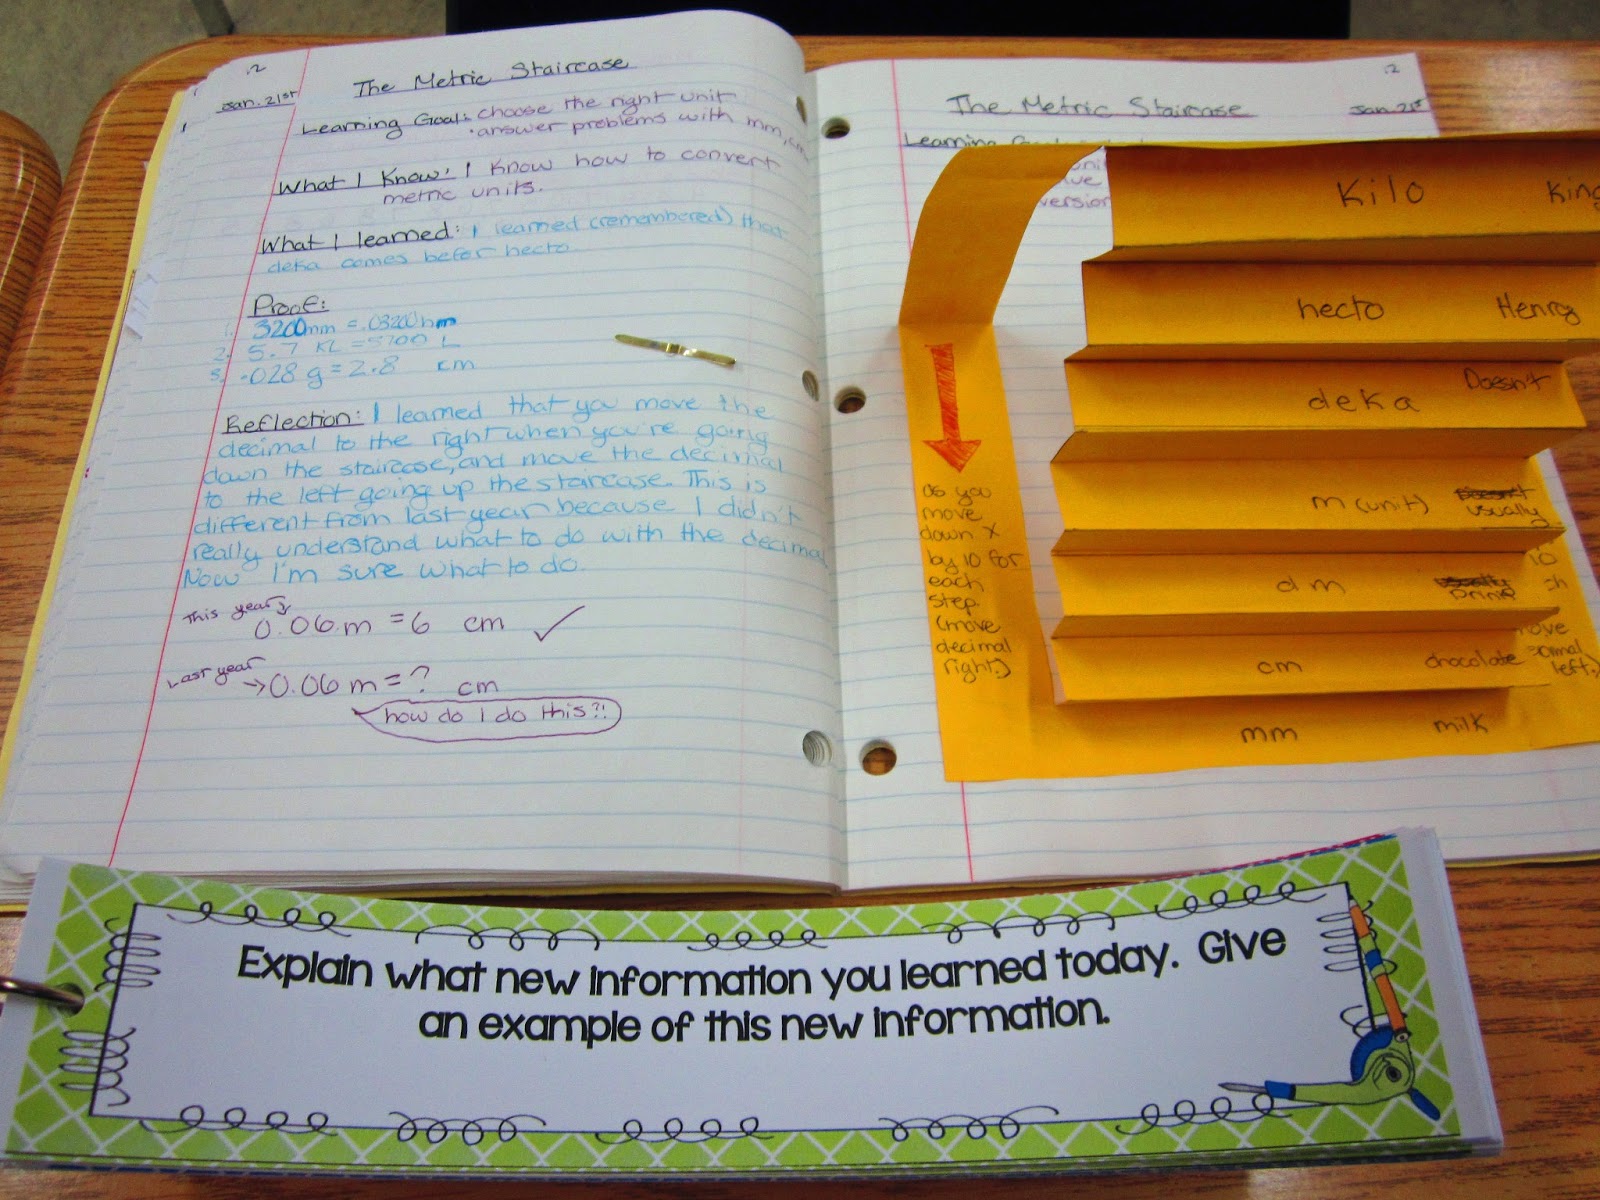 .2
Jan. 21st
The Metric Staircase
Learning Goal: choose the right unit
· answer problems with mm, cm
What I Know: I know how to convert
metric units.
What I learned: I learned (remembered) that
deka comes befor hecto
Proof:
1. 3200mm = .03200hm
2. 5.7 KL = 5700 L
3. .028 g = 2.8 cm
Reflection: I learned that you move the
decimal to the right when you're going
down the staircase, and move the decimal
to the left going up the staircase. This is
different from last year because I didn't
really understand what to do with the decimal
Now I'm sure what to do
This year
0.06 m = 6 cm ✓
Last year
→ 0.06 m = ? cm
how do I do this?!
.2
The Metric Staircase Jan. 21st
Learning
Kilo King
hecto Henry
deka Doesn't
m (unit) usually
dm Drink
cm chocolate
mm milk
as you
move
down x
by 10 for
each
step.
(move
decimal
right.)
10
left.)
Explain what new information you learned today. Give
an example of this new information.